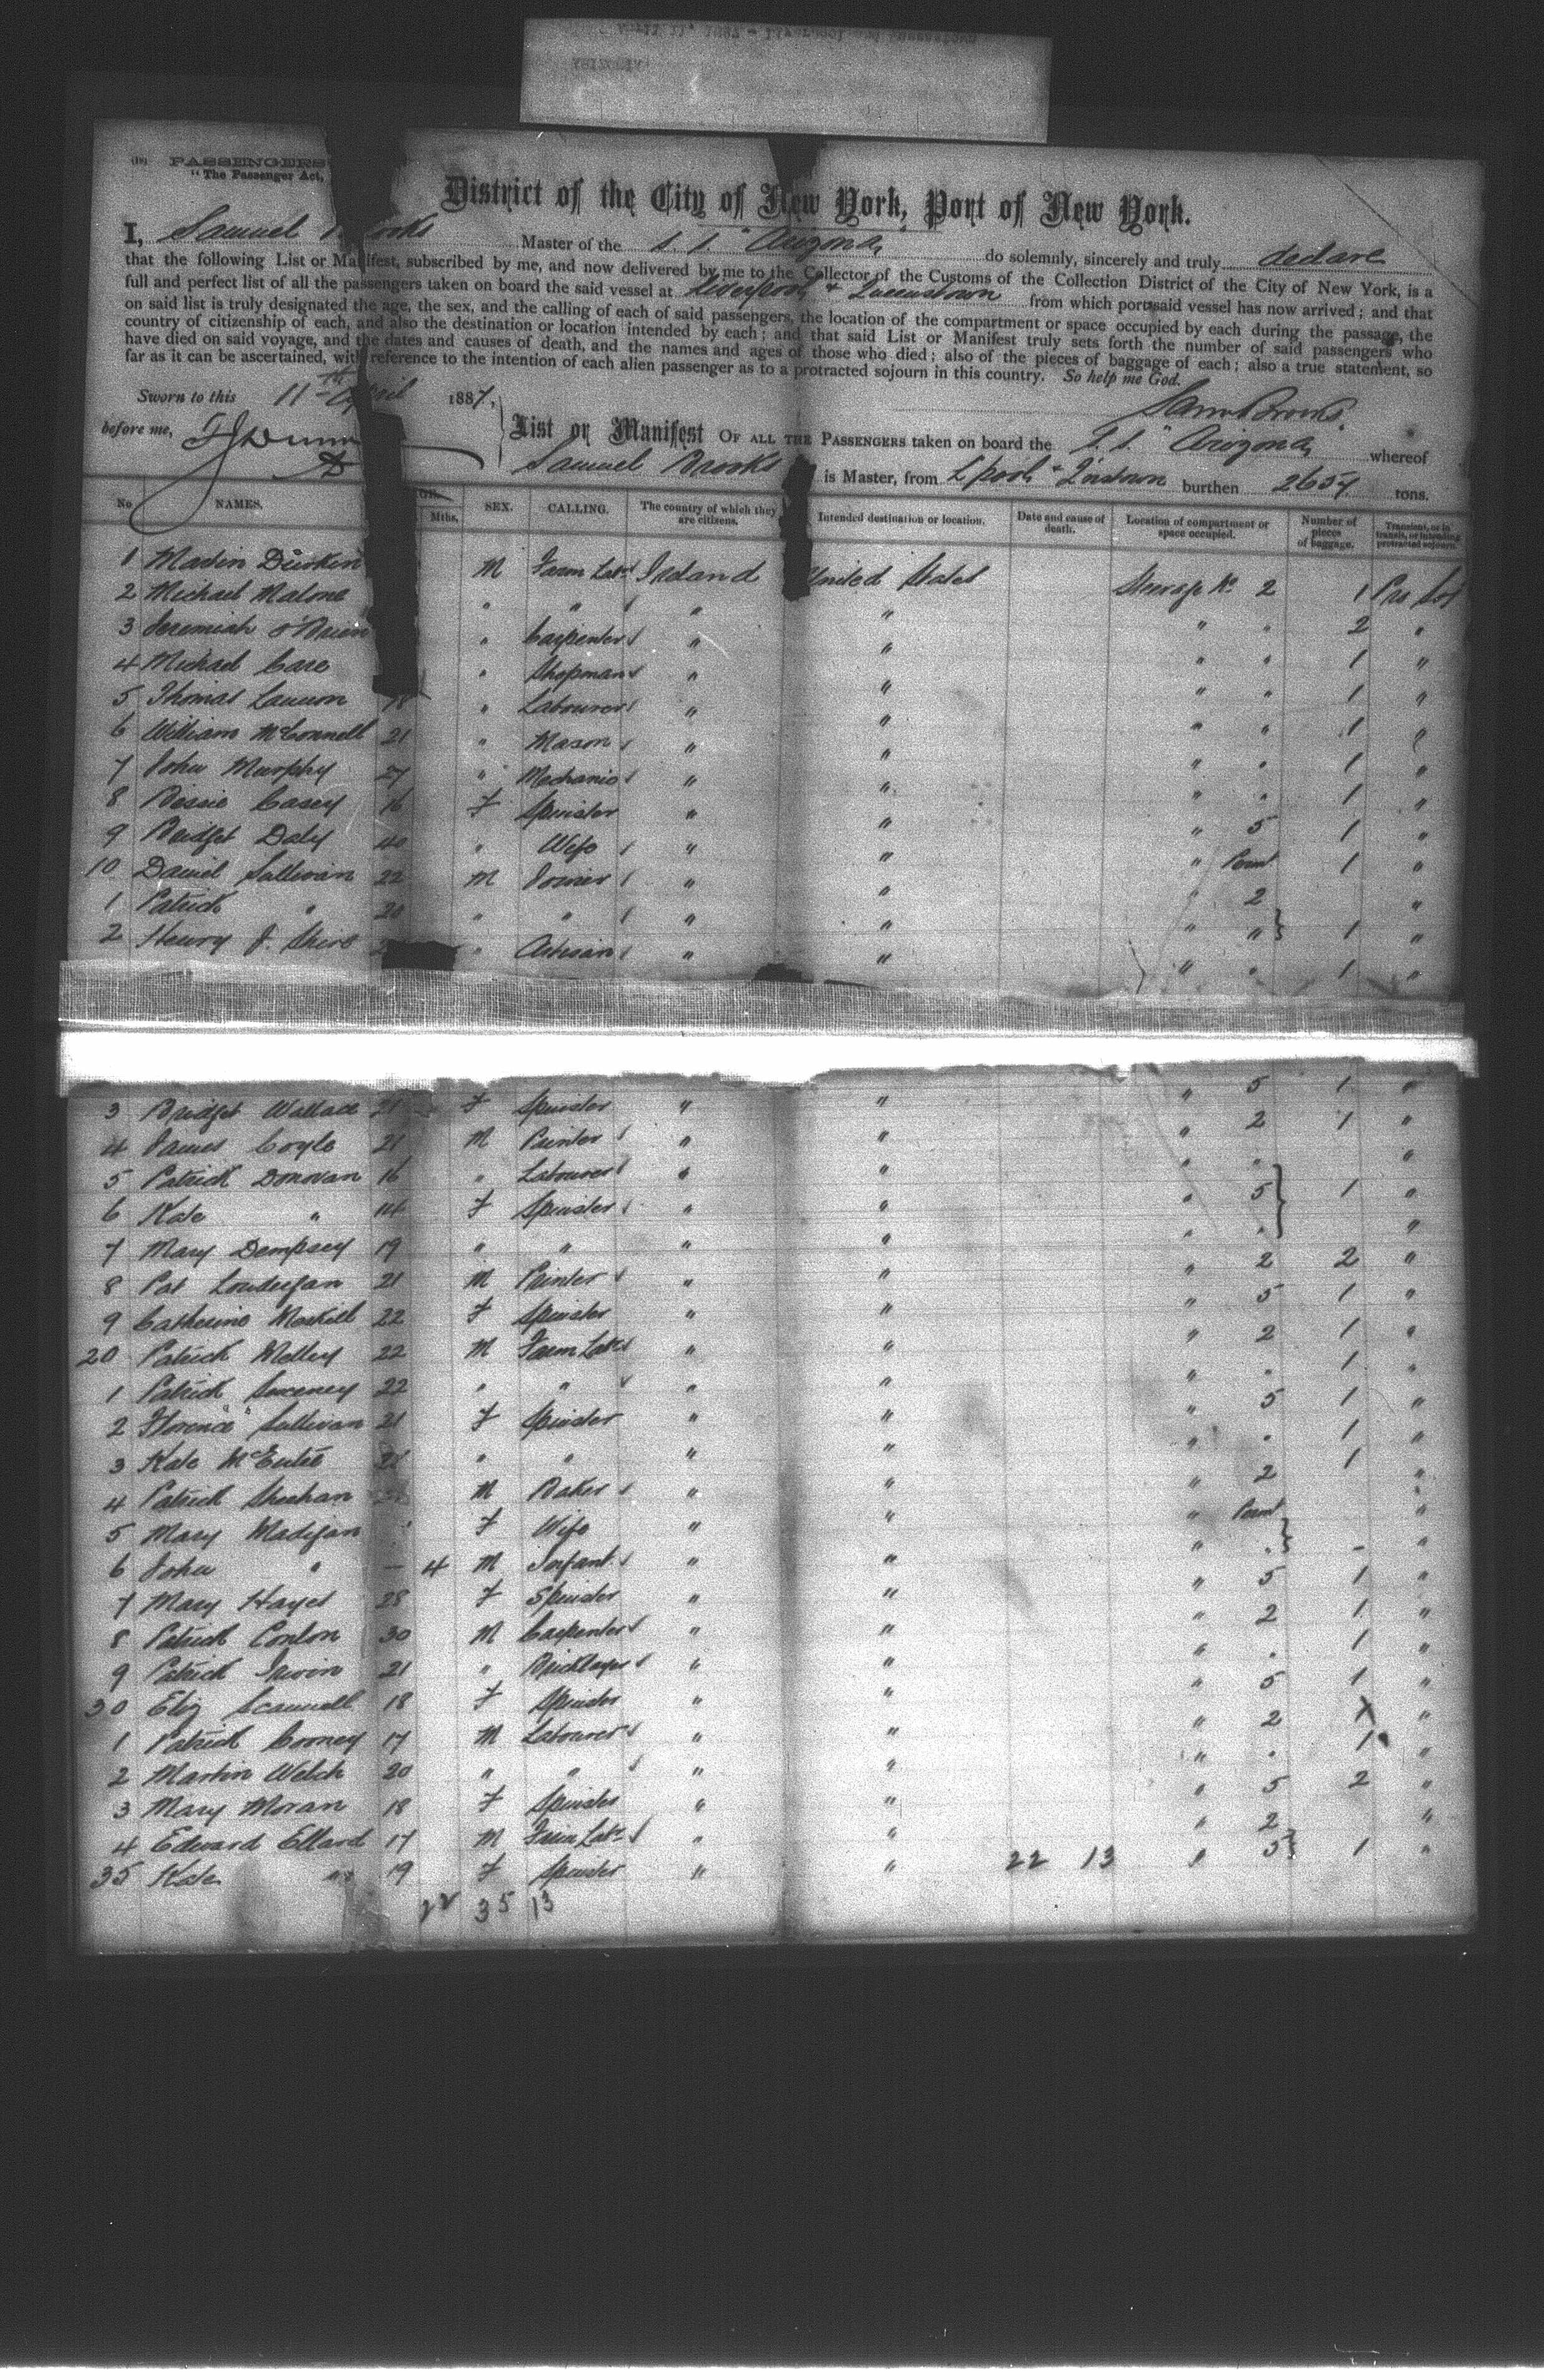 PASSENGERS
"The Passenger Act,
District of the City of New York, Port of New York.
I, Samuel Brooks Master of the S.S. "Arizona" do solemnly, sincerely and truly declare
that the following List or Manifest, subscribed by me, and now delivered by me to the Collector of the Customs of the Collection District of the City of New York, is a
full and perfect list of all the passengers taken on board the said vessel at Liverpool & Queenstown from which port said vessel has now arrived; and that
on said list is truly designated the age, the sex, and the calling of each of said passengers, the location of the compartment or space occupied by each during the passage, the
country of citizenship of each, and also the destination or location intended by each; and that said List or Manifest truly sets forth the number of said passengers who
have died on said voyage, and the dates and causes of death, and the names and ages of those who died; also of the pieces of baggage of each; also a true statement, so
far as it can be ascertained, with reference to the intention of each alien passenger as to a protracted sojourn in this country. So help me God.
Sworn to this 11th April 1887,
Sam Brooks.
before me,
List or Manifest OF ALL THE PASSENGERS taken on board the S.S. "Arizona" whereof
Samuel Brooks is Master, from L'pool & Q'nstown burthen tons.
No NAMES. Mths. SEX. CALLING. The country of which they are citizens. Intended destination or location. Date and cause of death. Location of compartment or space occupied. Number of pieces of baggage. Transient, or in transit, or intending protracted sojourn.
1 Martin Durkin M Farm Labr Ireland United States Steerage No 2 1
2 Michael Malone " " " " " " 2 "
3 Jeremiah O'Brien " Carpenter " " " " 1 "
4 Michael Care " Shopman " " " " 1 "
5 Thomas Lannon 18 " Labourer " " " " 1
6 William McConnell 21 " Mason " " " " 1 "
7 John Murphy 27 " Mechanic " " " " 1 "
8 Bessie Casey 16 F Spinster " " " 5 1 "
9 Bridget Daly 40 " Wife " " " 1 "
10 Daniel Sullivan 22 M Joiner " " " 2 "
1 Patrick " 20 " " " " " " 1 "
2 Henry J. Shire " Artisan " " " " 1 "
3 Bridget Wallace 21 F Spinster " " " 5 1 "
4 James Coyle 21 M Painter " " " 2 1 "
5 Patrick Donovan 16 " Labourer " " " " "
6 Kate " 14 F Spinster " " " 5 1 "
7 Mary Dempsey 19 " " " " " " "
8 Pat Londergan 21 M Painter " " " 2 2 "
9 Catherine Maskill 22 F Spinster " " " 5 1 "
20 Patrick Melley 22 M Farm Labr " " " 2 1 "
1 Patrick Sweeney 22 " " " " " " 1 "
2 Florence Sullivan 21 F Spinster " " " 5 1 "
3 Kate McEntee " " " " " " 1 "
4 Patrick Sheehan M Baker " " " 2 1 "
5 Mary Madigan F Wife " " " "
6 John " — 4 M Infant " " " " - "
7 Mary Hayes 28 F Spinster " " " 5 1 "
8 Patrick Conlon 30 M Carpenter " " " 2 1 "
9 Patrick Irwin 21 " Bricklayer " " " " 1 "
30 Eliz Scannell 18 F Spinster " " " 5 1 "
1 Patrick Cooney 17 M Labourer " " " 2 1 "
2 Martin Welch 20 " " " " " " 1 "
3 Mary Moran 18 F Spinster " " " 5 2 "
4 Edward Ellard 17 M Farm Labr " " " 2 "
35 Kate " 19 F Spinster " " 22 13 " 5 1 "
22 35 13